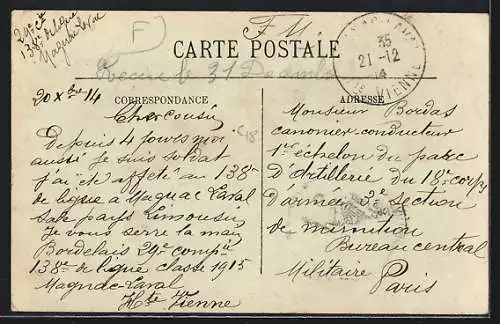 29e Cie
138e de ligne
Magnac Laval
F
F. M.
CARTE POSTALE
Recue le 31 Decembre
35
21-12
14
VIENNE
20 Xbre 14
CORRESPONDANCE
ADRESSE
Cher cousin
Depuis 4 jours moi
aussi je suis soldat
j'ai été affeté au 138e
de ligne a Magnac Laval
Sale pays Limousin
Je vous serre la main
Bordelais 29e compie
138e de ligne classe 1915
Magnac-Laval
Hte Vienne
C18
Monsieur Bordas
canonier conducteur
1er échelon du parc
D'Artillerie du 18e corps
D'armée 3e section
de munition
Bureau central
Militaire Paris